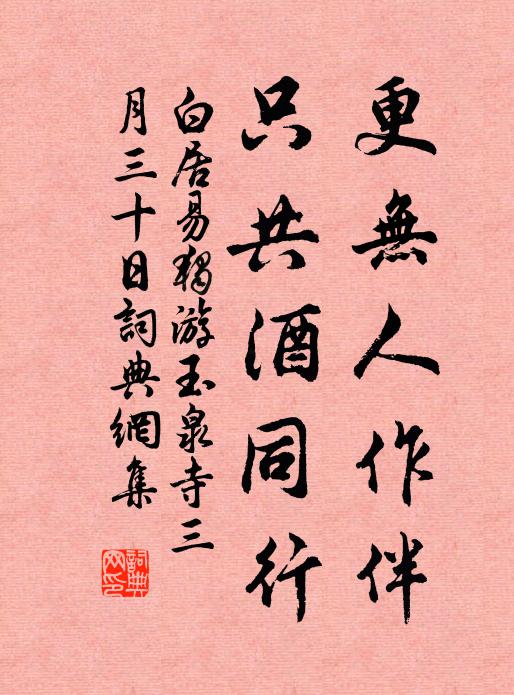 更無人作伴
只共酒同行
白居易獨游玉泉寺三
月三十日詞典網集
詞典
网印